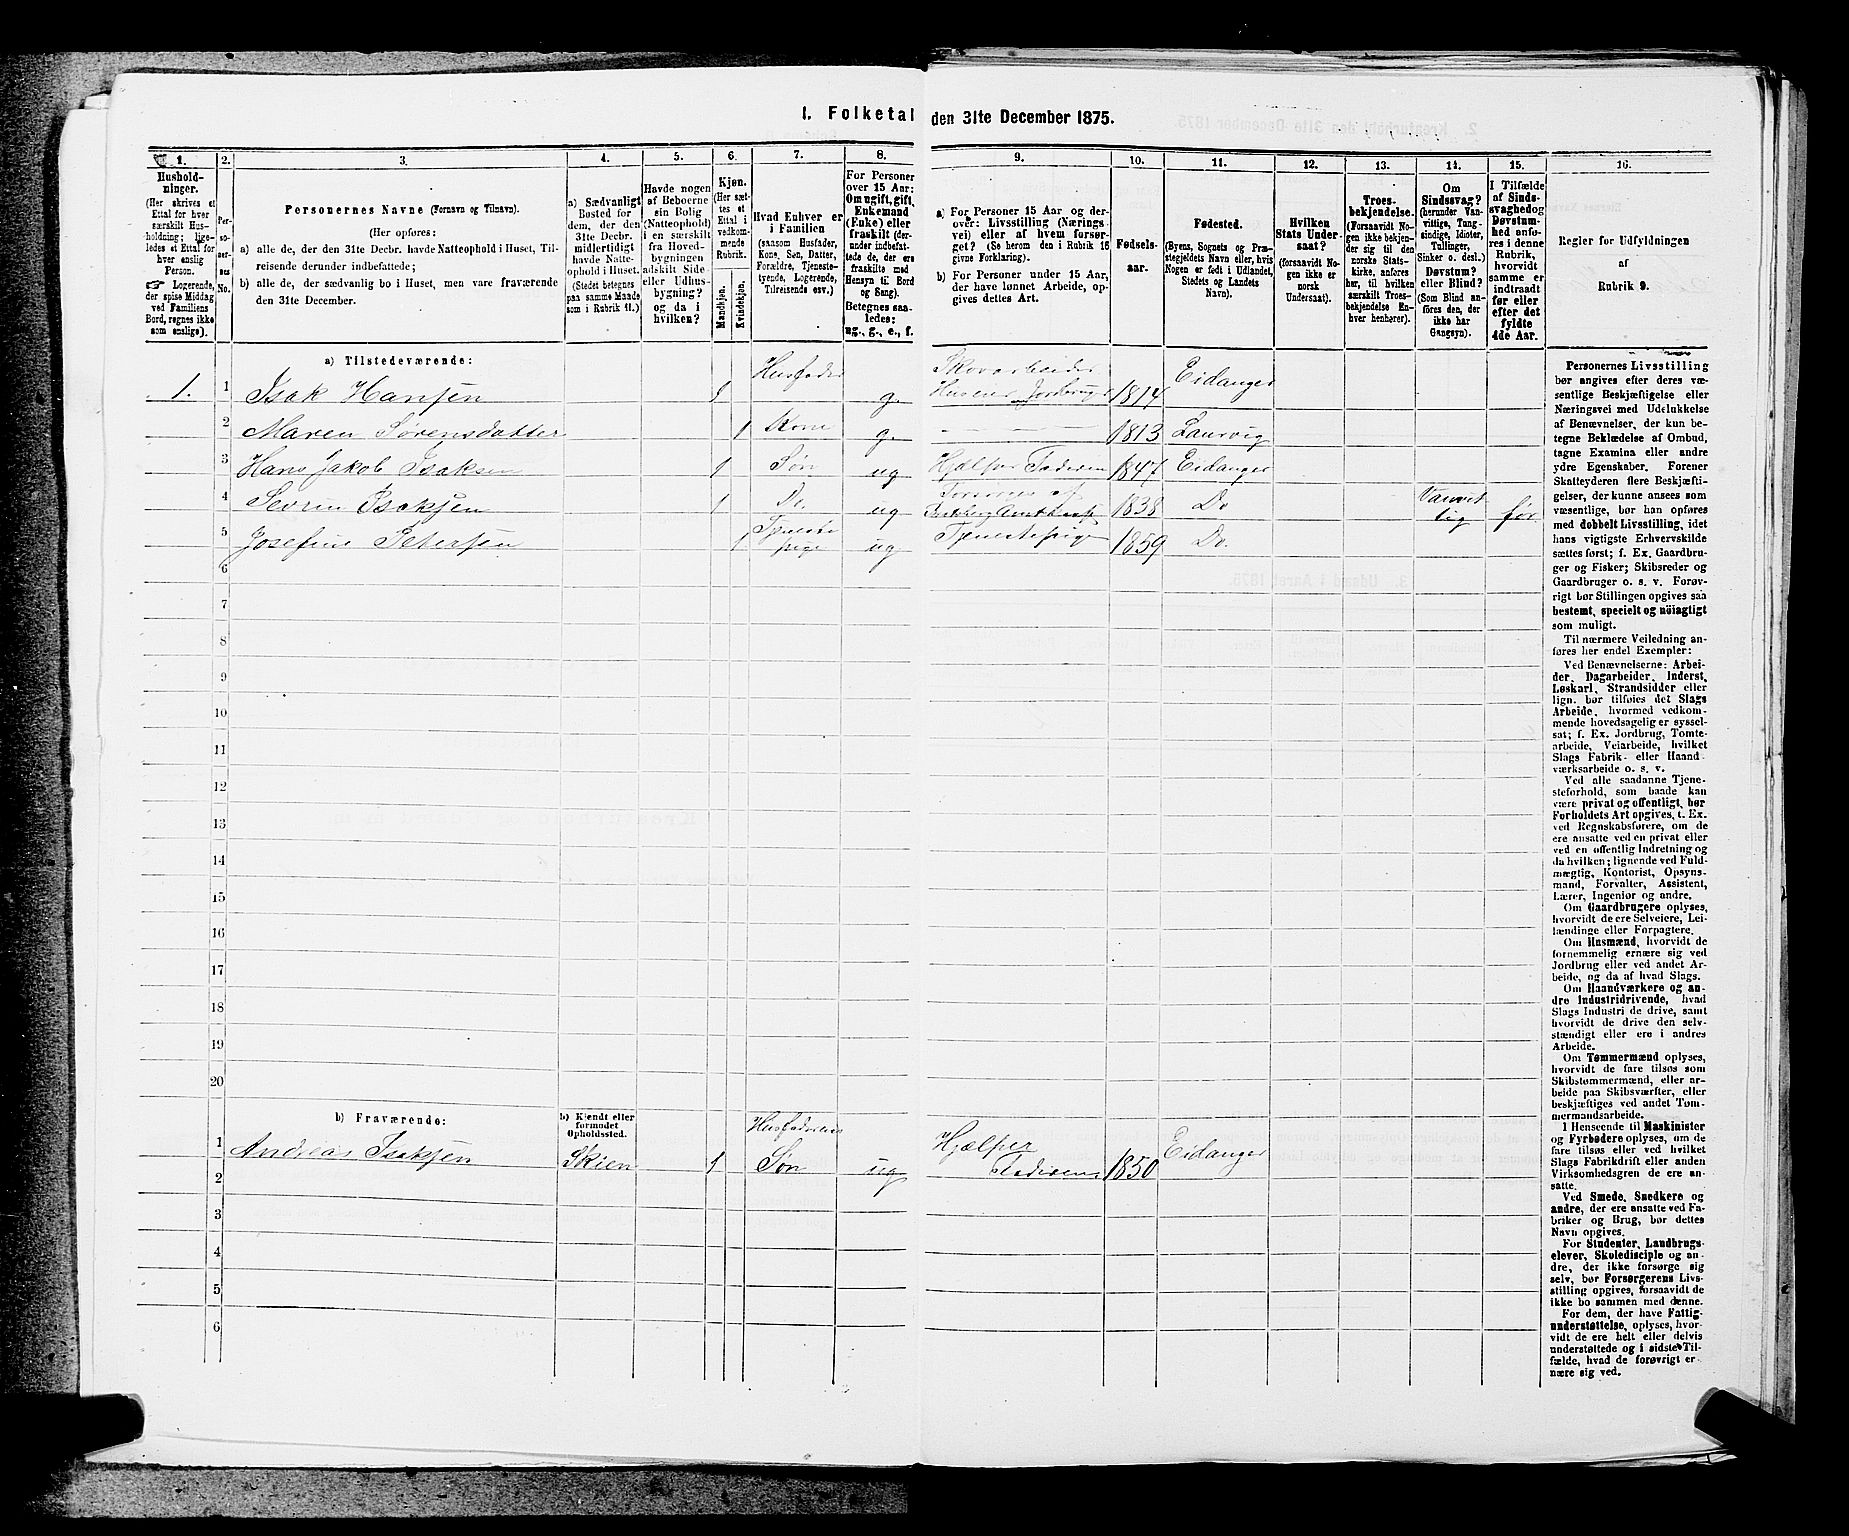 1. Folketal den 31te December 1875.
1.
Hushold-
ninger.
(Her skrives et
Ettal for hver
særskilt Hus-
holdning; lige-
ledes et Ettal for
hver enslig
Person.
☞ Logerende,
der spise Middag
ved Familiens
Bord, regnes ikke
som enslige).
2.
Per-
so-
ner-
nes
No.
3.
Personernes Navne (Fornavn og Tilnavn).
(Her opføres:
a) alle de, der den 31te Decbr. havde Natteophold i Huset, Til-
reisende derunder indbefattede;
b) alle de, der sædvanlig bo i Huset, men vare fraværende
den 31te December.
4.
a) Sædvanligt
Bosted for
dem, der den
31te Decbr.
midlertidigt
havde Natte-
ophold i Huset.
(Stedet betegnes
paa samme Maade
som i Rubrik 11.)
5.
Havde nogen
af Beboerne
sin Bolig
(Natteophold)
i en særskilt
fra Hoved-
bygningen
adskilt Side-
eller Udhus-
bygning?
og da i
hvilken?
6.
Kjøn.
(Her sæt-
tes et
Ettal i
vedkom-
mende
Rubrik.
Mandkjøn.
Kvindekjøn.
7.
Hvad Enhver er
i Familien
(saasom Husfader,
Kone, Søn, Datter,
Forældre, Tjeneste-
tyende, Logerende,
Tilreisende osv.)
8.
For Personer
over 15 Aar:
Om ugift, gift,
Enkemand
(Enke) eller
fraskilt (der-
under indbefat-
tede de, der ere
fraskilte med
Hensyn til Bord
og Seng).
Betegnes saa-
ledes:
ug., g., e., f.
9.
a) For Personer 15 Aar og der-
over: Livsstilling (Nærings-
vei) eller af hvem forsør-
get? (Se herom den i Rubrik 16
givne Forklaring).
b) For Personer under 15 Aar,
der have lønnet Arbeide, op-
gives dettes Art.
10.
Fødsels-
aar.
11.
Fødested.
(Byens, Sognets og Præ-
stegjeldets Navn eller, hvis
Nogen er født i Udlandet,
Stedets og Landets
Navn).
12.
Hvilken
Stats Under-
saat?
(forsaavidt No-
gen ikke er
norsk
Undersaat).
13.
Troes-
bekjendelse.
(Forsaavidt No-
gen ikke bekjen-
der sig til den
norske Stats-
kirke, anføres
her, til hvilken
særskilt Troes-
bekjendelse En-
hver henhører).
14.
Om
Sindssvag?
(herunder Van-
vittige, Tung-
sindige, Idioter,
Tullinger,
Sinker o. desl.)
Døvstum?
eller Blind?
(Som Blind an-
føres den, der
ikke har
Gangsyn).
15.
I Tilfælde
af Sinds-
svaghed og
Døvstum-
hed anfø-
res i denne
Rubrik,
hvorvidt
samme er
indtraadt
før eller
efter det
fyldte
4de Aar.
16.
Regler for Udfyldningen
af
Rubrik 9.
a) Tilstedeværende:
1. 1 Isak Hansen 1 Husfader g. Skovarbeider Huseier og Jordbruger 1814 Eidanger
2 Maren Sørensdatter 1 Kone g. — — — 1813 Laurvig
3 Hans Jakob Isaksen 1 Søn ug Hjælper Faderen 1847 Eidanger
4 Sevrin Isaksen 1 Do. ug Forsørges af 1838 Do Vanvittig før
5 Josefine Petersen 1 Tjenestepige ug Tjenestepige 1859 Do.
6
7
8
9
10
11
12
13
14
15
16
17
18
19
20
b) Fraværende:
b) Kjendt eller
formodet
Opholdssted.
1 Andreas Isaksen Skien 1 Husfaderens Søn ug Hjælper Faderen 1850 Eidanger
2
3
4
5
6
Personernes Livsstilling
bør angives efter deres væ-
sentlige Beskjæftigelse eller
Næringsvei med Udelukkelse
af Benævnelser, der kun be-
tegne Beklædelse af Ombud,
tagne Examina eller andre
ydre Egenskaber. Forener
Skatteyderen flere Beskjæfti-
gelser, der kunne ansees som
væsentlige, bør han opføres
med dobbelt Livsstilling, idet
hans vigtigste Erhvervskilde
sættes først; f. Ex. Gaardbru-
ger og Fisker; Skibsreder og
Gaardbruger o. s. v. Forøv-
rigt bør Stillingen opgives saa
bestemt, specielt og nöiagtigt
som muligt.
Til nærmere Veiledning an-
føres her endel Exempler:
Ved Benævnelserne: Arbei-
der, Dagarbeider, Inderst,
Løskarl, Strandsidder eller
lign. bør tilføies det Slags
Arbeide, hvormed vedkom-
mende hovedsagelig er syssel-
sat; f. Ex. Jordbrug, Tomte-
arbeide, Veiarbeide, hvilket
Slags Fabrik- eller Haand-
værksarbeide o. s. v.
Ved alle saadanne Tjene-
steforhold, som baade kan
være privat og offentligt, bør
Forholdets Art opgives, t. Ex.
ved Regnskabsførere, om de
ere ansatte ved en privat eller
ved en offentlig Indretning og
da hvilken; lignende ved Fuld-
mægtig, Kontorist, Opsyns-
mand, Forvalter, Assistent,
Lærer, Ingeniør og andre.
Om Gaardbrugere oplyses,
hvorvidt de ere Selveiere, Lei-
lændinge eller Forpagtere.
Om Husmænd, hvorvidt de
fornemmelig ernære sig ved
Jordbrug eller ved andet Ar-
beide, og da af hvad Slags.
Om Haandværkere og an-
dre Industridrivende, hvad
Slags Industri de drive, samt
hvorvidt de drive den selv-
stændigt eller ere i andres
Arbeide.
Om Tømmermænd oplyses,
hvorvidt de fare tilsøs som
Skibstømmermænd, eller ar-
beide paa Skibsværfter, eller
beskjæftiges ved andet Tøm-
mermandsarbeide.
I Henseende til Maskinister
og Fyrbødere oplyses, om de
fare tilsøs eller ved hvilket
Slags Fabrikdrift eller anden
Virksomhedsgren de ere an-
satte.
Ved Smede, Snedkere og
andre, der ere ansatte ved Fa-
briker og Brug, bør dettes
Navn opgives.
For Studenter, Landbrugs-
elever, Skoledisciple og an-
dre, der ikke forsørge sig
selv, bør Forsørgerens Livs-
stilling opgives, forsaavidt de
ikke bo sammen med denne.
For dem, der have Fattig-
understøttelse, oplyses, hvor-
vidt de ere helt eller delvis
understøttede og i sidste Til-
fælde, hvad de forøvrigt er-
nære sig ved.